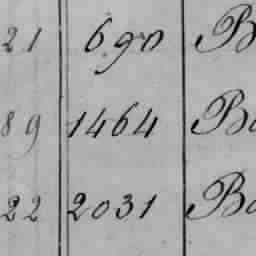 21 690 B
89 1464 Ba
22 2031 Ba